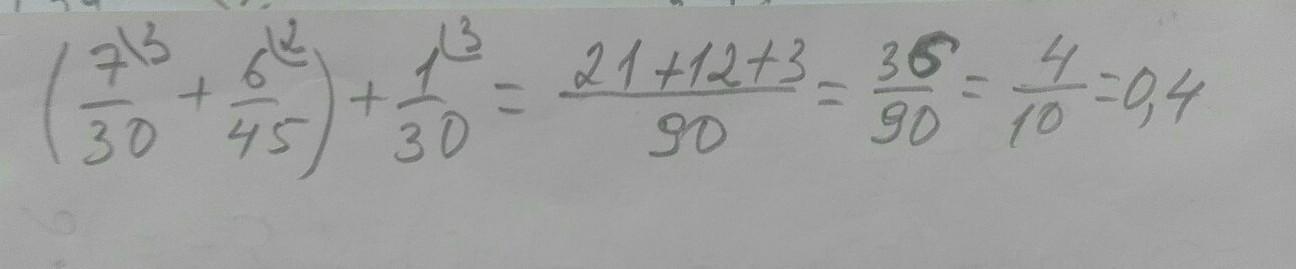 (7\3/30 + 6\2/45) + 1\3/30 = 21+12+3/90 = 36/90 = 4/10 = 0,4